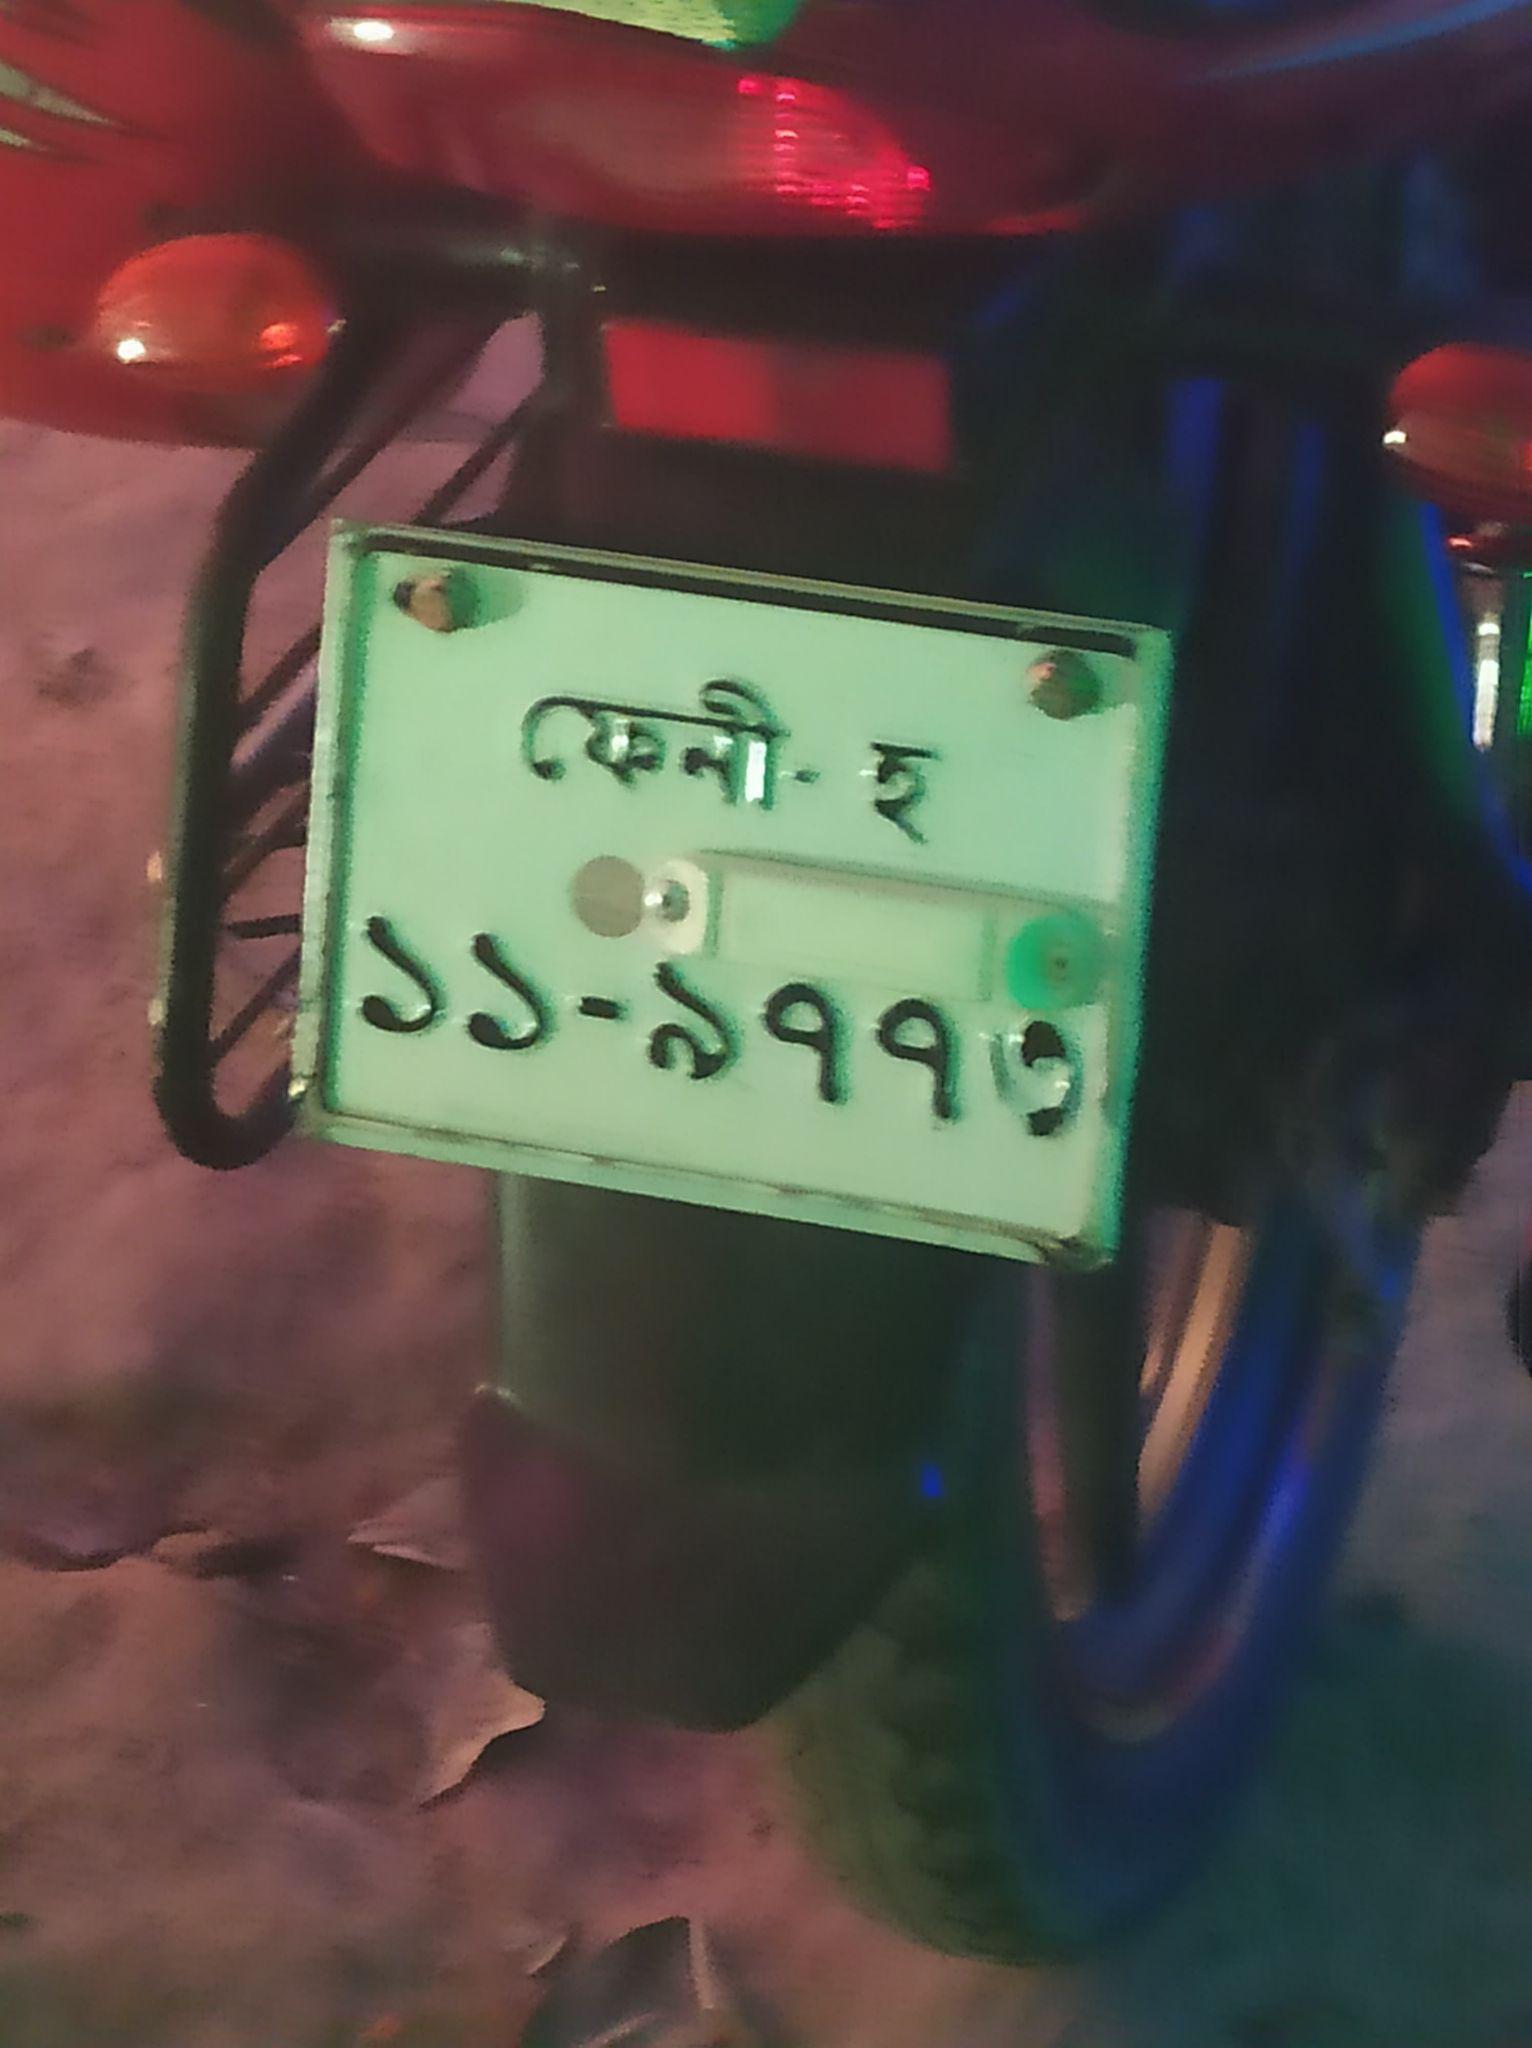 ফেনী-হ
১১-৯৭৭৩